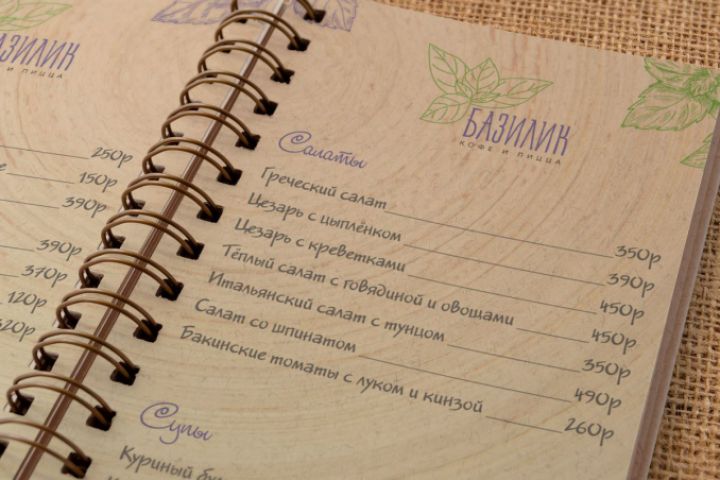 БАЗИЛИК
И ПИЦЦА
250р
150р
390р
390р
370р
120р
320р
БАЗИЛИК
КОФЕ И ПИЦЦА
Салаты
Греческий салат 350р
Цезарь с цыплёнком 390р
Цезарь с креветками 450р
Тёплый салат с говядиной и овощами 450р
Итальянский салат с тунцом 350р
Салат со шпинатом 490р
Бакинские томаты с луком и кинзой 260р
Супы
Куриный